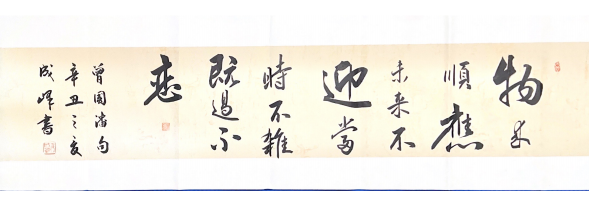 物来
順應
未来不
迎當
時不雜
既過不
戀
曾國藩句
辛丑之夏
成峰書